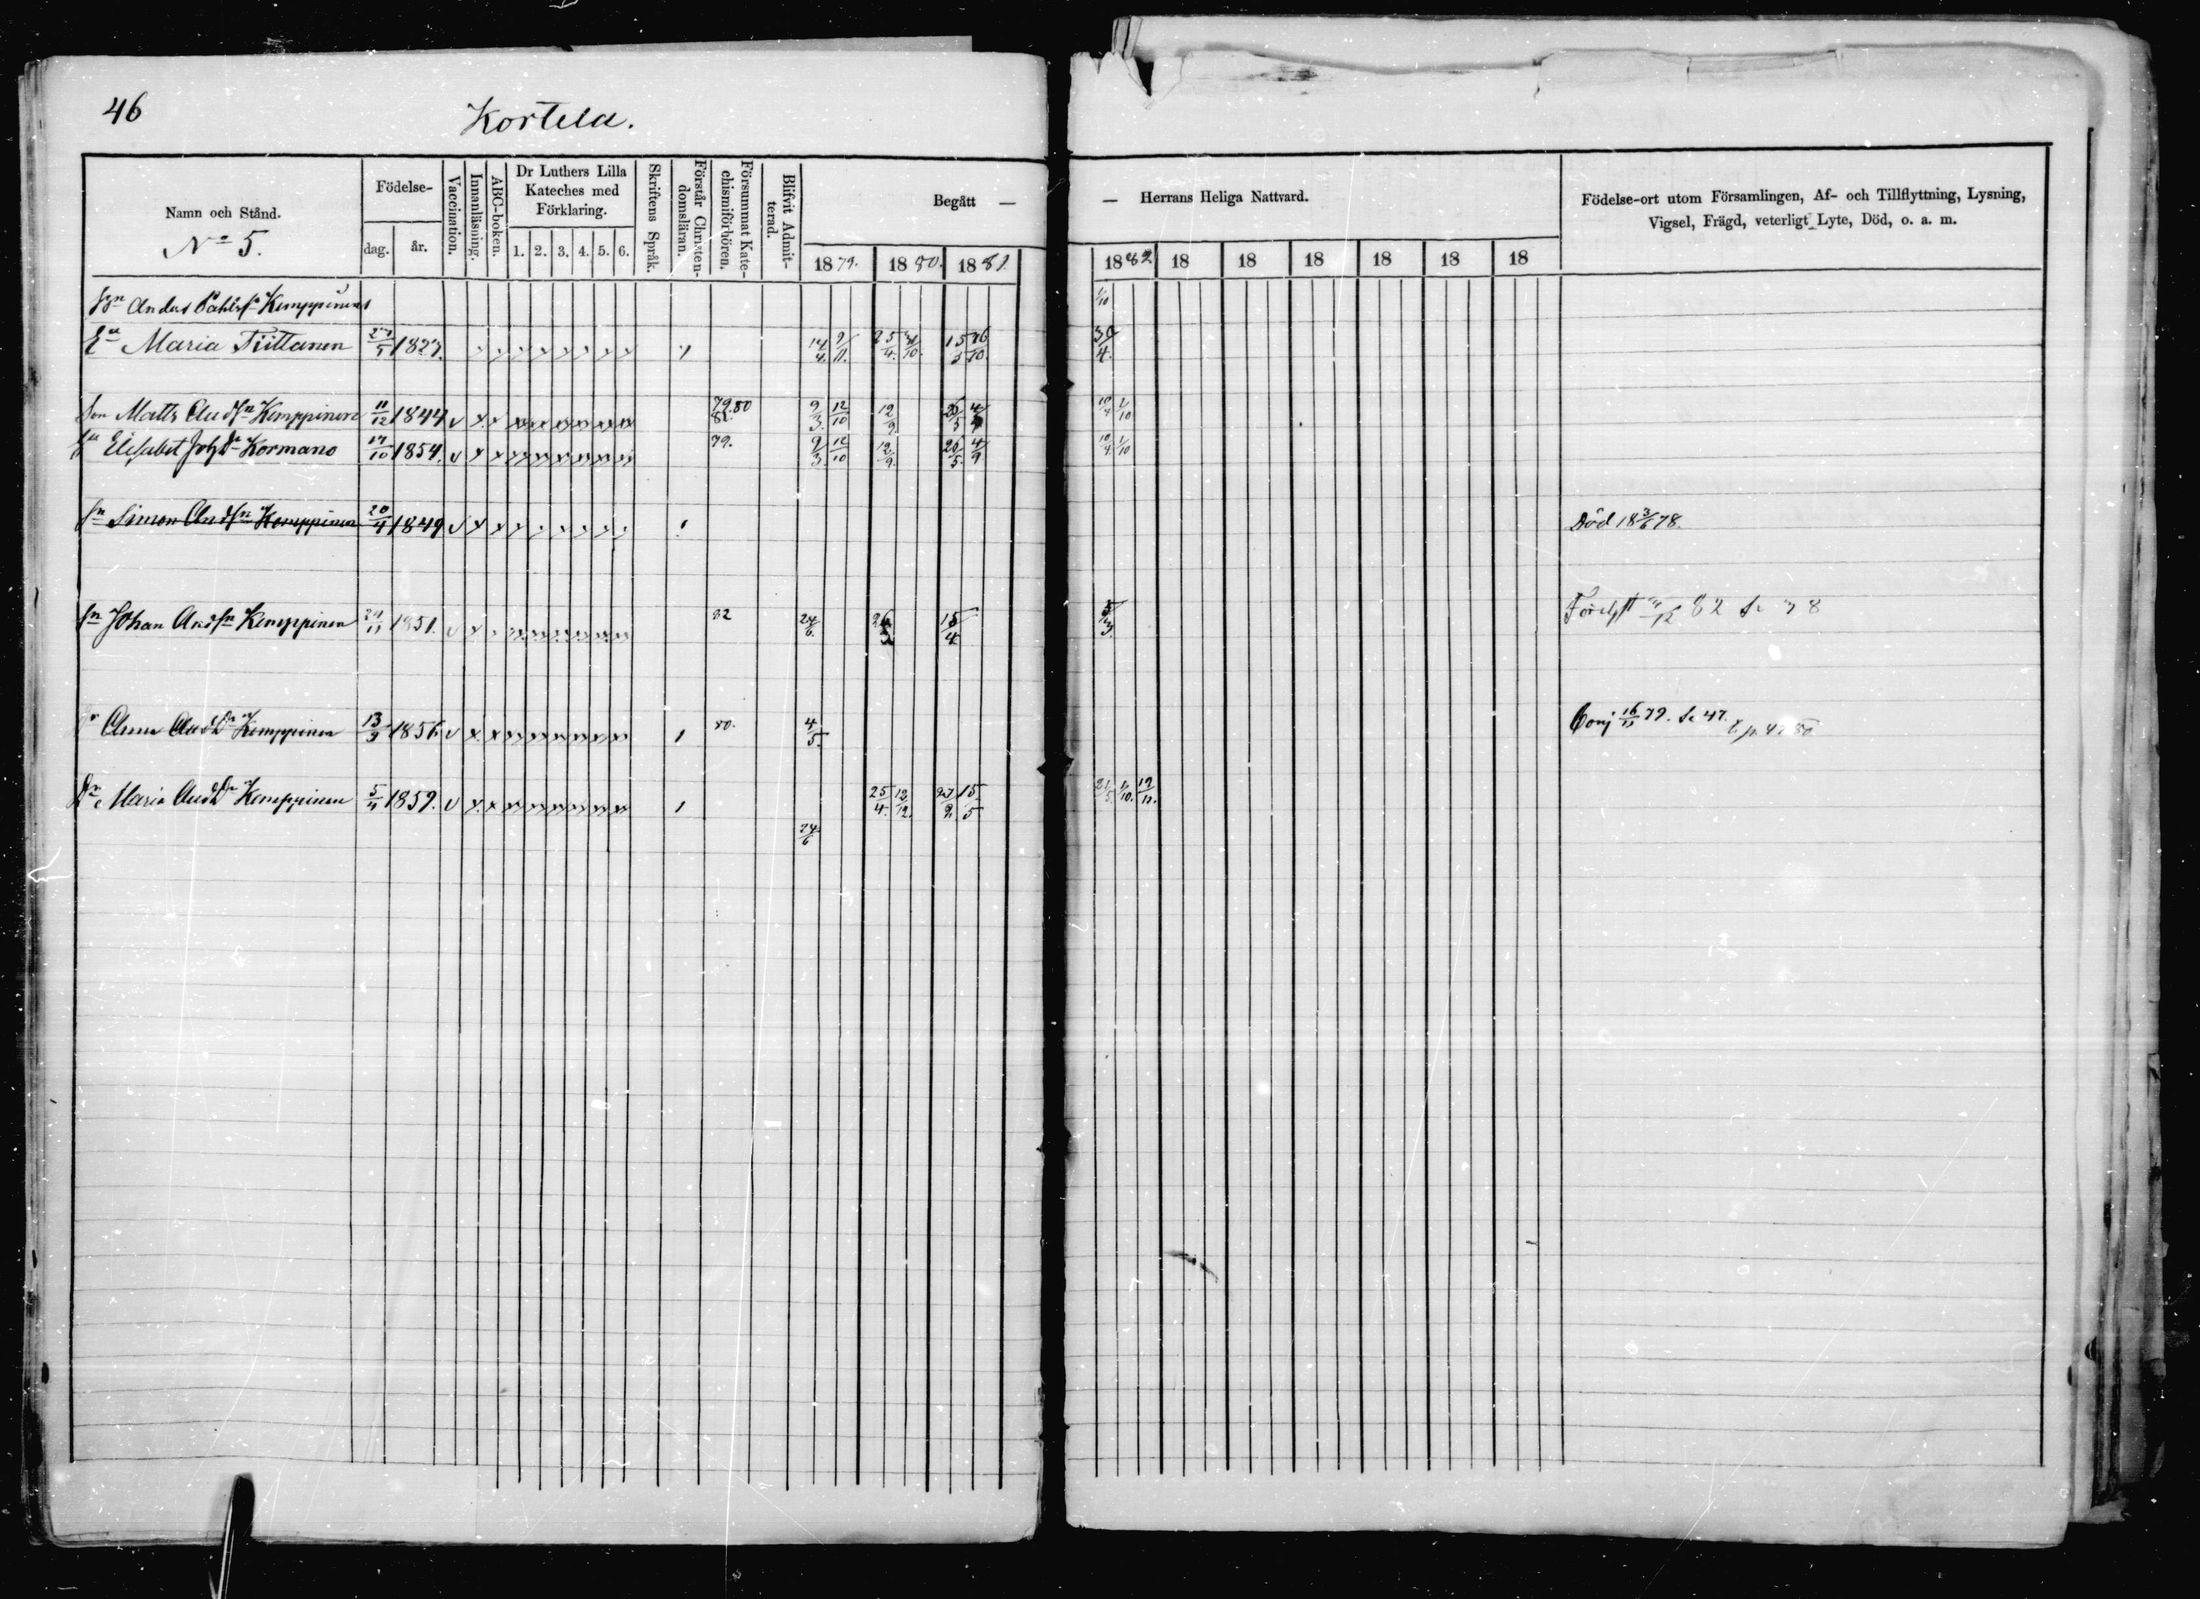 46
Kortela.
Namn och Stånd.
No 5.
Födelse-
dag. år.
Vaccination.
Innanläsning.
ABC-boken.
Dr Luthers Lilla
Kateches med
Förklaring.
1. 2. 3. 4. 5. 6.
Skriftens Språk.
Förstår Christen-
domsläran.
Försummat Kate-
chismiförhören.
Blifvit Admit-
terad.
Begått —
1879. 1880. 1881.
— Herrans Heliga Nattvard.
1882 18 18 18 18 18 18
Födelse-ort utom Församlingen, Af- och Tillflyttning, Lysning,
Vigsel, Frägd, veterligt Lyte, Död, o. a. m.
Anders Kemppinens 1/10
Ea Maria Tiittanen 27/5 1827. 14/4. 9/11. 25/4. 31/10. 15/5 16/10 30/4.
Son Matts Andsn Kemppinen 11/12 1844 79.80 82. 9/3. 12/10 12/9 26/5 4/9 10/4 1/10
Hu Elisabet Joh Dr Kormano 17/10 1854. 79. 9/3 12/10 12/9. 26/5. 4/9 10/4 1/10
Sn Simon Andsn Kemppinen 20/4 1849 Död 18 3/6 78.
Sn Johan Andsn Kemppinen 1851. 82 24/6. 15/4 5/3 82
Dr Anna Andsdr Kemppinen 13/3 1856 80. 4/5. Conj 16/11 79. Se 47.
Dr Maria Andsdr Kemppinen 5/4 1859. 25/4. 12/12. 27/2. 15/5 21/5. 1/10. 19/11.
24/6